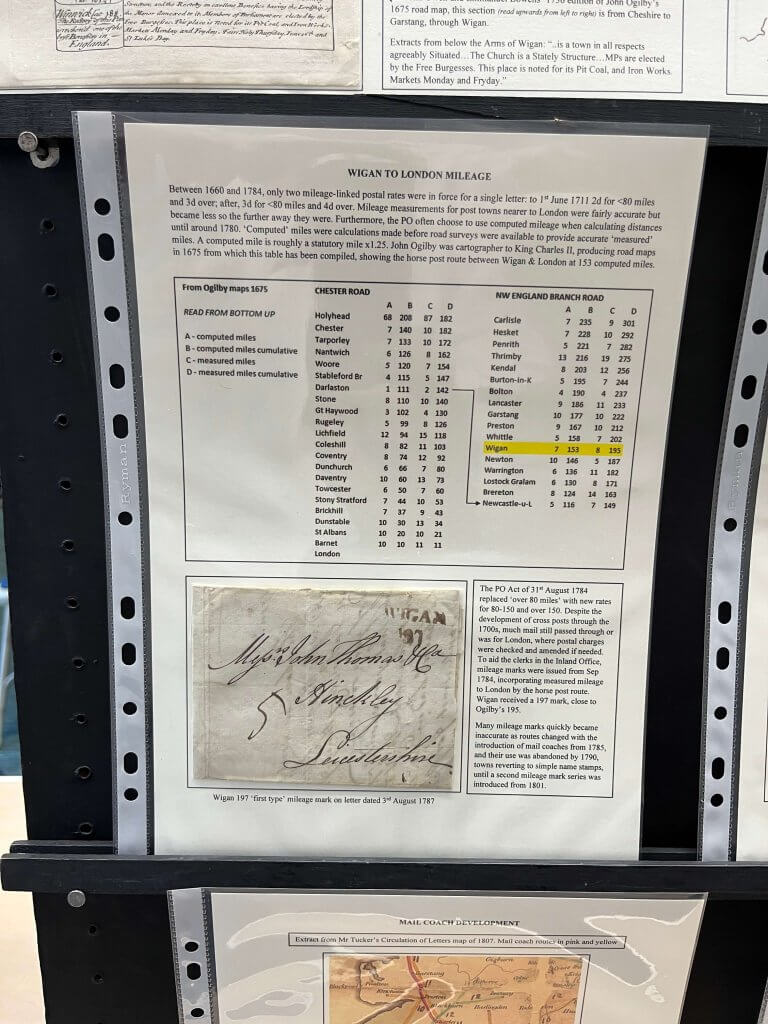 Garstang, through Wigan.
Extracts from below the Arms of Wigan: "..is a town in all respects
agreeably Situated…The Church is a Stately Structure…MPs are elected
by the Free Burgesses. This place is noted for its Pit Coal, and Iron Works.
Markets Monday and Fryday."
1675 road map, this section (read upwards from left to right) is from Cheshire to
England.
WIGAN TO LONDON MILEAGE
Between 1660 and 1784, only two mileage-linked postal rates were in force for a single letter: to 1st June 1711 2d for <80 miles
and 3d over; after, 3d for <80 miles and 4d over. Mileage measurements for post towns nearer to London were fairly accurate but
became less so the further away they were. Furthermore, the PO often choose to use computed mileage when calculating distances
until around 1780. 'Computed' miles were calculations made before road surveys were available to provide accurate 'measured'
miles. A computed mile is roughly a statutory mile x1.25. John Ogilby was cartographer to King Charles II, producing road maps
in 1675 from which this table has been compiled, showing the horse post route between Wigan & London at 153 computed miles.
From Ogilby maps 1675
READ FROM BOTTOM UP
A - computed miles
B - computed miles cumulative
C - measured miles
D - measured miles cumulative
CHESTER ROAD
A B C D
Holyhead 68 208 87 182
Chester 7 140 10 182
Tarporley 7 133 10 172
Nantwich 6 126 8 162
Woore 5 120 7 154
Stableford Br 4 115 5 147
Darlaston 1 111 2 142
Stone 8 110 10 140
Gt Haywood 3 102 4 130
Rugeley 5 99 8 126
Lichfield 12 94 15 118
Coleshill 8 82 11 103
Coventry 8 74 12 92
Dunchurch 6 66 7 80
Daventry 10 60 13 73
Towcester 6 50 7 60
Stony Stratford 7 44 10 53
Brickhill 7 37 9 43
Dunstable 10 30 13 34
St Albans 10 20 10 21
Barnet 10 10 11 11
London
NW ENGLAND BRANCH ROAD
A B C D
Carlisle 7 235 9 301
Hesket 7 228 10 292
Penrith 5 221 7 282
Thrimby 13 216 19 275
Kendal 8 203 12 256
Burton-in-K 5 195 7 244
Bolton 4 190 4 237
Lancaster 9 186 11 233
Garstang 10 177 10 222
Preston 9 167 10 212
Whittle 5 158 7 202
Wigan 7 153 8 195
Newton 10 146 5 187
Warrington 6 136 11 182
Lostock Gralam 6 130 8 171
Brereton 8 124 14 163
Newcastle-u-L 5 116 7 149
WIGAN
197
Messrs John Thomas & Co
Hinckley
5
Leicestershire
Wigan 197 'first type' mileage mark on letter dated 3rd August 1787
The PO Act of 31st August 1784
replaced 'over 80 miles' with new rates
for 80-150 and over 150. Despite the
development of cross posts through the
1700s, much mail still passed through or
was for London, where postal charges
were checked and amended if needed.
To aid the clerks in the Inland Office,
mileage marks were issued from Sep
1784, incorporating measured mileage
to London by the horse post route.
Wigan received a 197 mark, close to
Ogilby's 195.
Many mileage marks quickly became
inaccurate as routes changed with the
introduction of mail coaches from 1785,
and their use was abandoned by 1790,
towns reverting to simple name stamps,
until a second mileage mark series was
introduced from 1801.
Ryman
MAIL COACH DEVELOPMENT
Extract from Mr Tucker's Circulation of Letters map of 1807. Mail coach routes in pink and yellow
Garstang
Preston
Blackburn